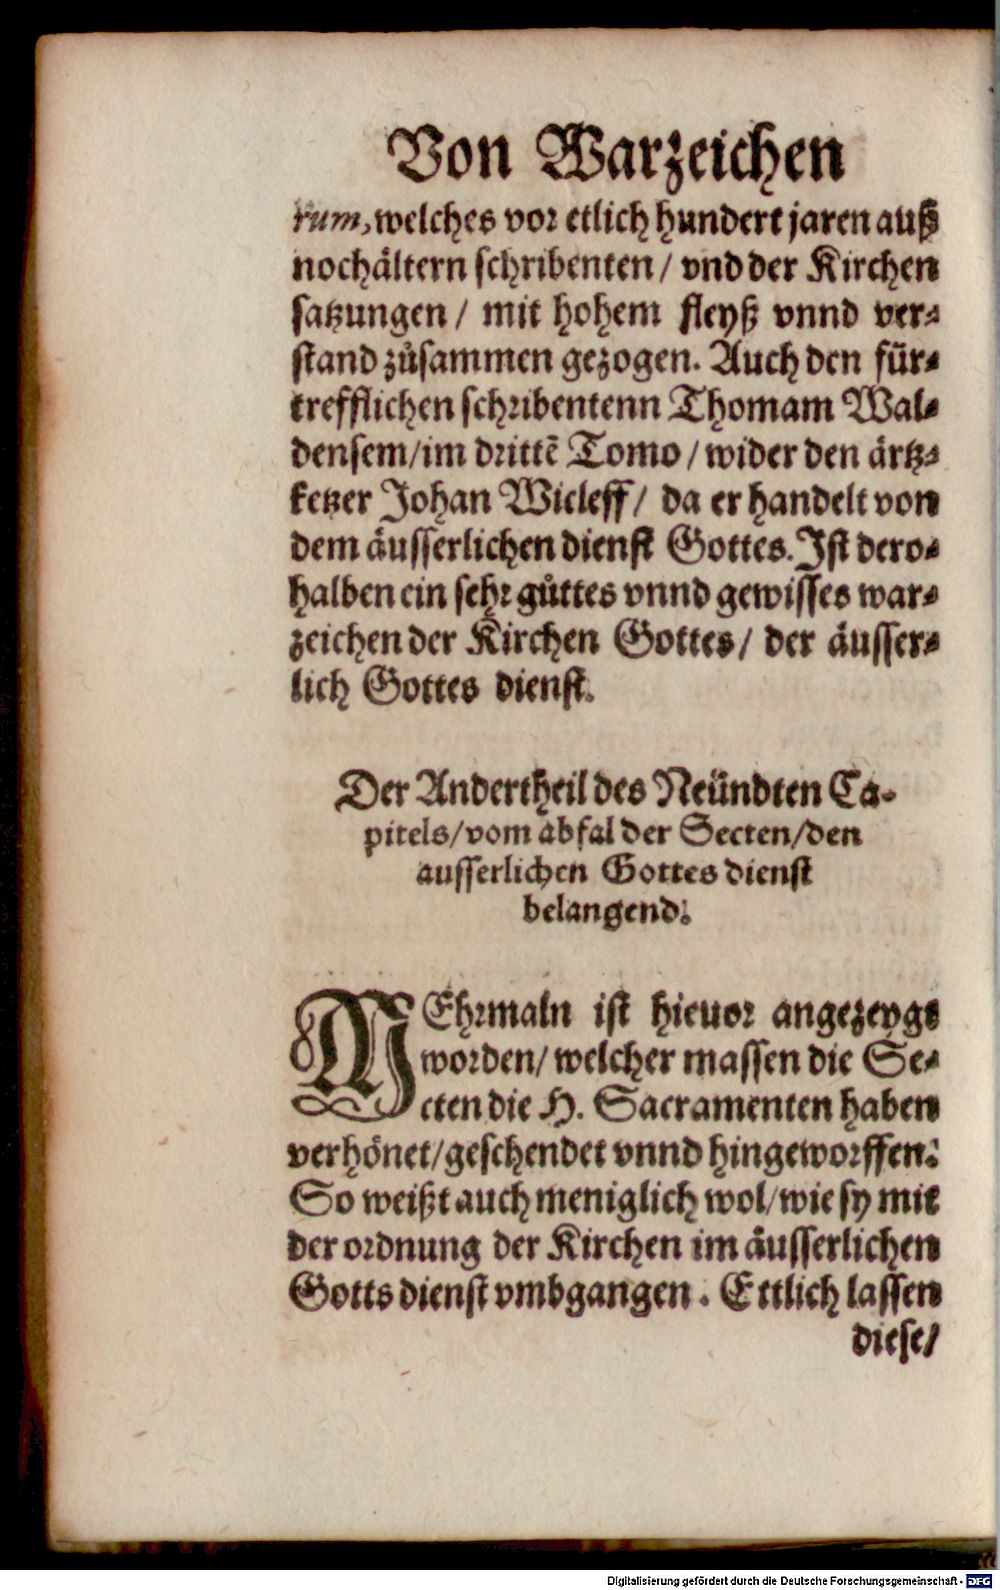 Von Warzeichen
rum, welches vor etlich hundert jaren auß
nochältern schribenten / vnd der Kirchen
satzungen / mit hohem fleyß vnnd ver⸗
stand zůsammen gezogen. Auch den für⸗
trefflichen schribentenn Thomam Wal⸗
densem/im drittē Tomo / wider den ärtz⸗
ketzer Johan Wicleff / da er handelt von
dem äusserlichen dienst Gottes. Ist dero⸗
halben ein sehr gůttes vnnd gewisses war⸗
zeichen der Kirchen Gottes / der äusser⸗
lich Gottes dienst.
Der Andertheil des Neündten Ca⸗
pitels/vom abfal der Secten/den
ausserlichen Gottes dienst
belangend.
MEhrmaln ist hieuor angezeygt
worden/ welcher massen die Se⸗
cten die H. Sacramenten haben
verhönet/geschendet vnnd hingeworffen:
So weißt auch meniglich wol/wie sy mit
der ordnung der Kirchen im äusserlichen
Gotts dienst vmbgangen. Ettlich lassen
diese/
Digitalisierung gefördert durch die Deutsche Forschungsgemeinschaft - DFG